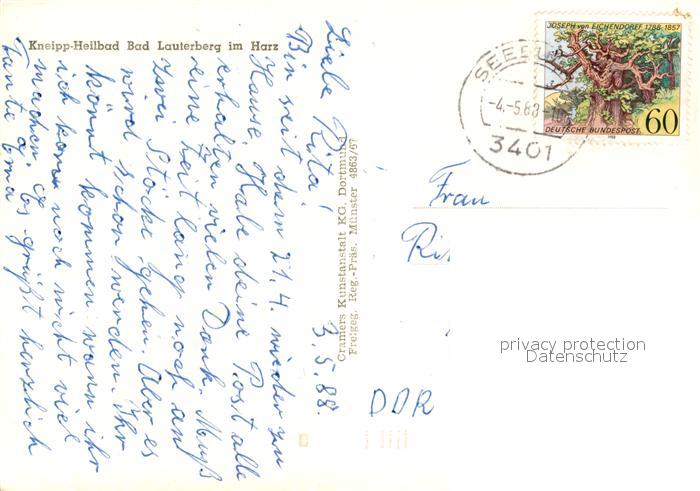 Kneipp-Heilbad Bad Lauterberg im Harz
3.5.88.
Liebe Rita!
Bin seit dem 21.4. wieder zu
Hause. Habe deine Post alle
erhalten vielen Dank. Muß
eine Zeit lang noch an
zwei Stöcke gehen. Aber es
wird schon werden. Ihr
könnt kommen wann ihr
ich kann noch nicht viel
machen es grüßt herzlich
Tante
Oma
Cramers Kunstanstalt KG, Dortmund
Freigeg. Reg.-Präs. Münster 4863/67
JOSEPH von EICHENDORFF 1788-1857
DEUTSCHE BUNDESPOST 60
1988
-4.-5.88
3401
Frau
DDR
privacy protection
Datenschutz